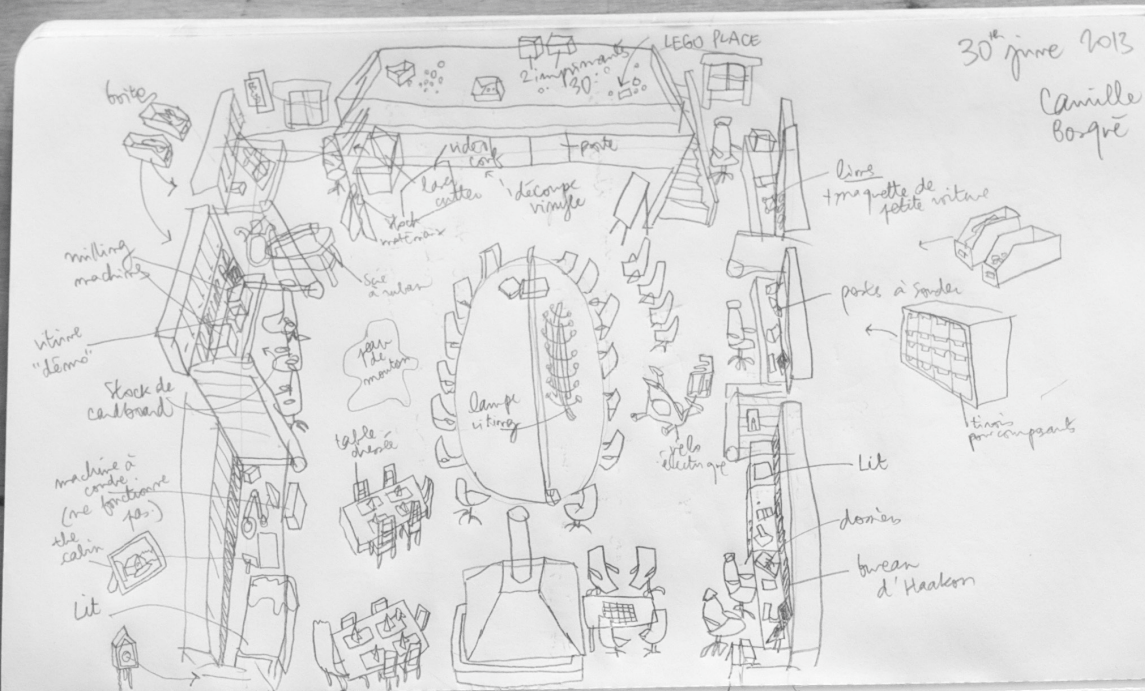 30th june 2013
Camille
Bosqué
LEGO PLACE
2 imprimantes
3D
boite
video
conf
+ poste
laser
cutter
découpe
vinyle
stock
matériaux
livres
+ maquette de
petite voiture
milling
machines
scie
à ruban
postes à souder
vitrine
"démo"
peau
de
mouton
Stock de
cardboard
lampe
viking
tiroirs
pour composants
table
dressée
vélo
électrique
machine à
coudre
(ne fonctionne
pas)
Lit
the
cabin
dossiers
bureau
d'Haakon
Lit